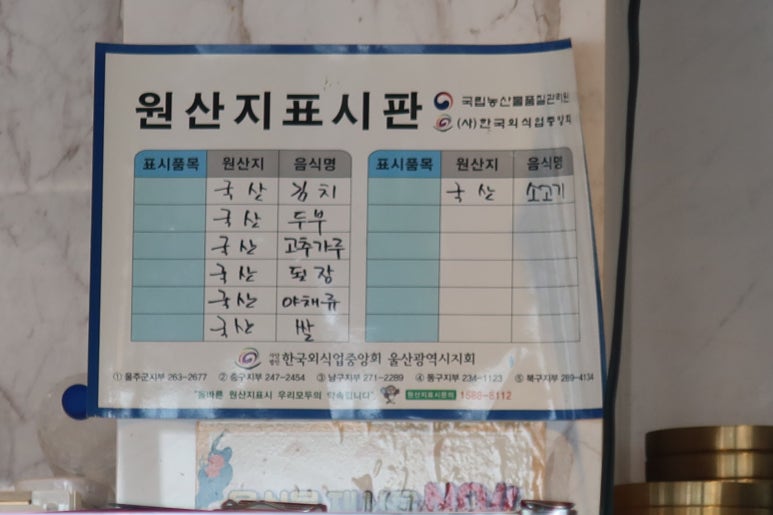 원산지표시판
국립농산물품질관리원
(사)한국외식업중앙회
표시품목 원산지 음식명 표시품목 원산지 음식명
국산 김치 국산 소고기
국산 두부
국산 고추가루
국산 된장
국산 야채류
국산 쌀
사단법인 한국외식업중앙회 울산광역시지회
① 울주군지부 263-2677 ② 중구지부 247-2454 ③ 남구지부 271-2289 ④ 동구지부 234-1123 ⑤ 북구지부 289-4134
"올바른 원산지표시 우리모두의 약속입니다" 원산지표시문의 1588-8112